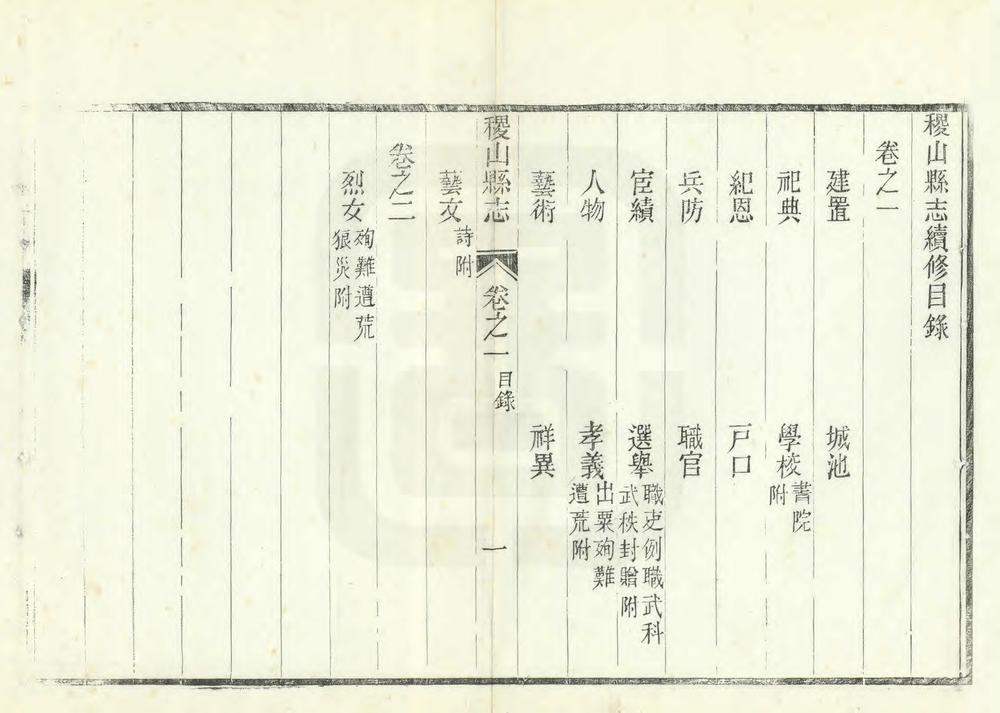 稷山縣志續修目錄
卷之一
建置 城池
祀典 學校書院附
紀恩 戶口
兵防 職官
宦績 選舉職吏例職武科武秩封贈附
人物 孝義出粟殉難遭荒附
藝術 祥異
稷山縣志 卷之一 目錄 一
藝文詩附
卷之二
烈女殉難遭荒狼災附